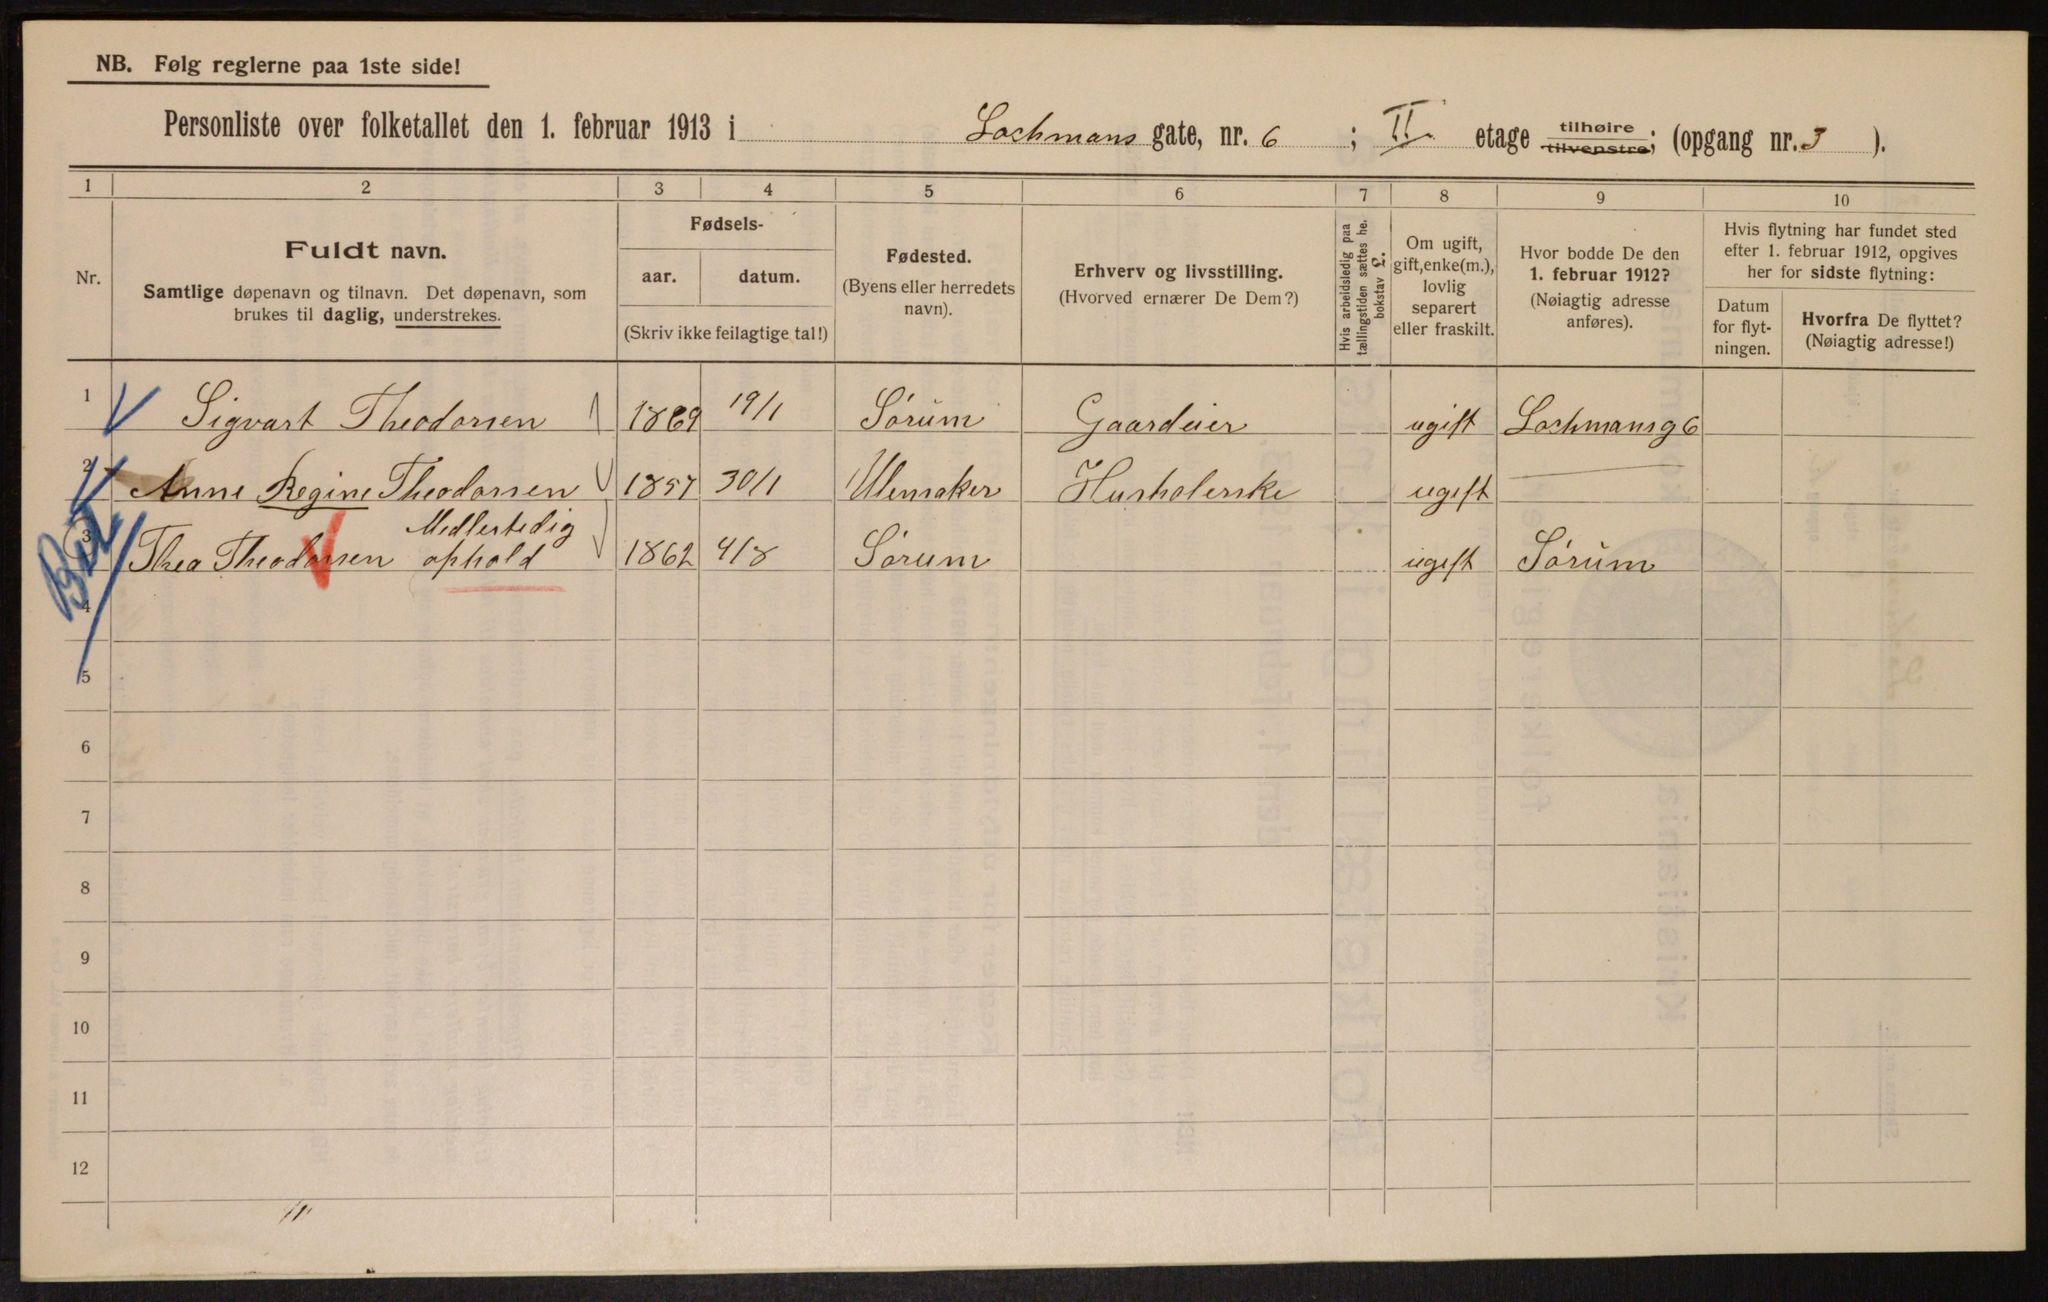 NB. Følg reglerne paa 1ste side!
Personliste over folketallet den 1. februar 1913 i Lochmans gate, nr. 6 ; II. etage tilhøire tilvenstre; (opgang nr. 3 ).
1 2 3 4 5 6 7 8 9 10
Nr.
Fuldt navn.
Samtlige døpenavn og tilnavn. Det døpenavn, som
brukes til daglig, understrekes.
Fødsels-
aar. datum.
(Skriv ikke feilagtige tal!)
Fødested.
(Byens eller herredets
navn).
Erhverv og livsstilling.
(Hvorved ernærer De Dem?)
Hvis arbeidsledig paa
tællingstiden sættes her
bokstav L.
Om ugift,
gift, enke(m.),
lovlig
separert
eller fraskilt.
Hvor bodde De den
1. februar 1912?
(Nøiagtig adresse
anføres).
Hvis flytning har fundet sted
efter 1. februar 1912, opgives
her for sidste flytning:
Datum
for flyt-
ningen.
Hvorfra De flyttet?
(Nøiagtig adresse!)
1 Sigvart Theodorsen 1869 19/1 Sørum Gaardeier ugift Lochmansg 6
2 Anne Regine Theodorsen 1857 30/1 Ullensaker Husholerske ugift
3 Thea Theodorsen Medlertedig ophold 1862 4/8 Sørum ugift Sørum
4
5
6
7
8
9
10
11
12